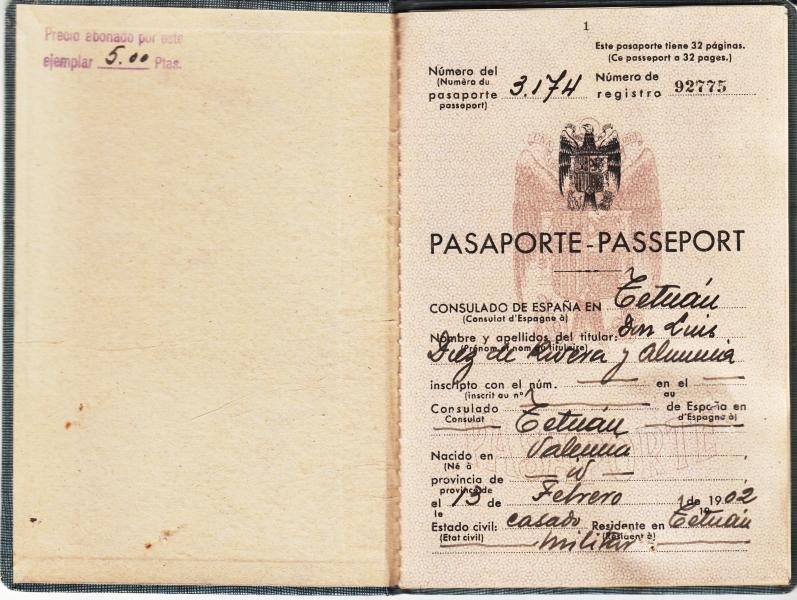 Precio abonado por este
ejemplar 5.00 Ptas.
1
Este pasaporte tiene 32 páginas.
(Ce passeport a 32 pages.)
Número del
(Numéro du
pasaporte
passeport)
3.174
Número de
registro 92775
PASAPORTE-PASSEPORT
CONSULADO DE ESPAÑA EN Tetuán
(Consulat d'Espagne à)
Nombre y apellidos del titular: Don Luis
(Prénom et nom du titulaire)
Diez de Rivera y Almunia
inscripto con el núm. en el
(inscrit au nº au
Consulado Tetuán de España en
Consulat d'Espagne à)
Nacido en Valencia
(Né à
provincia de id
province de
el 13 de Febrero de 1902
le 19
Estado civil: casado Residente en Tetuán
(Etat civil) (Résident à)
militar